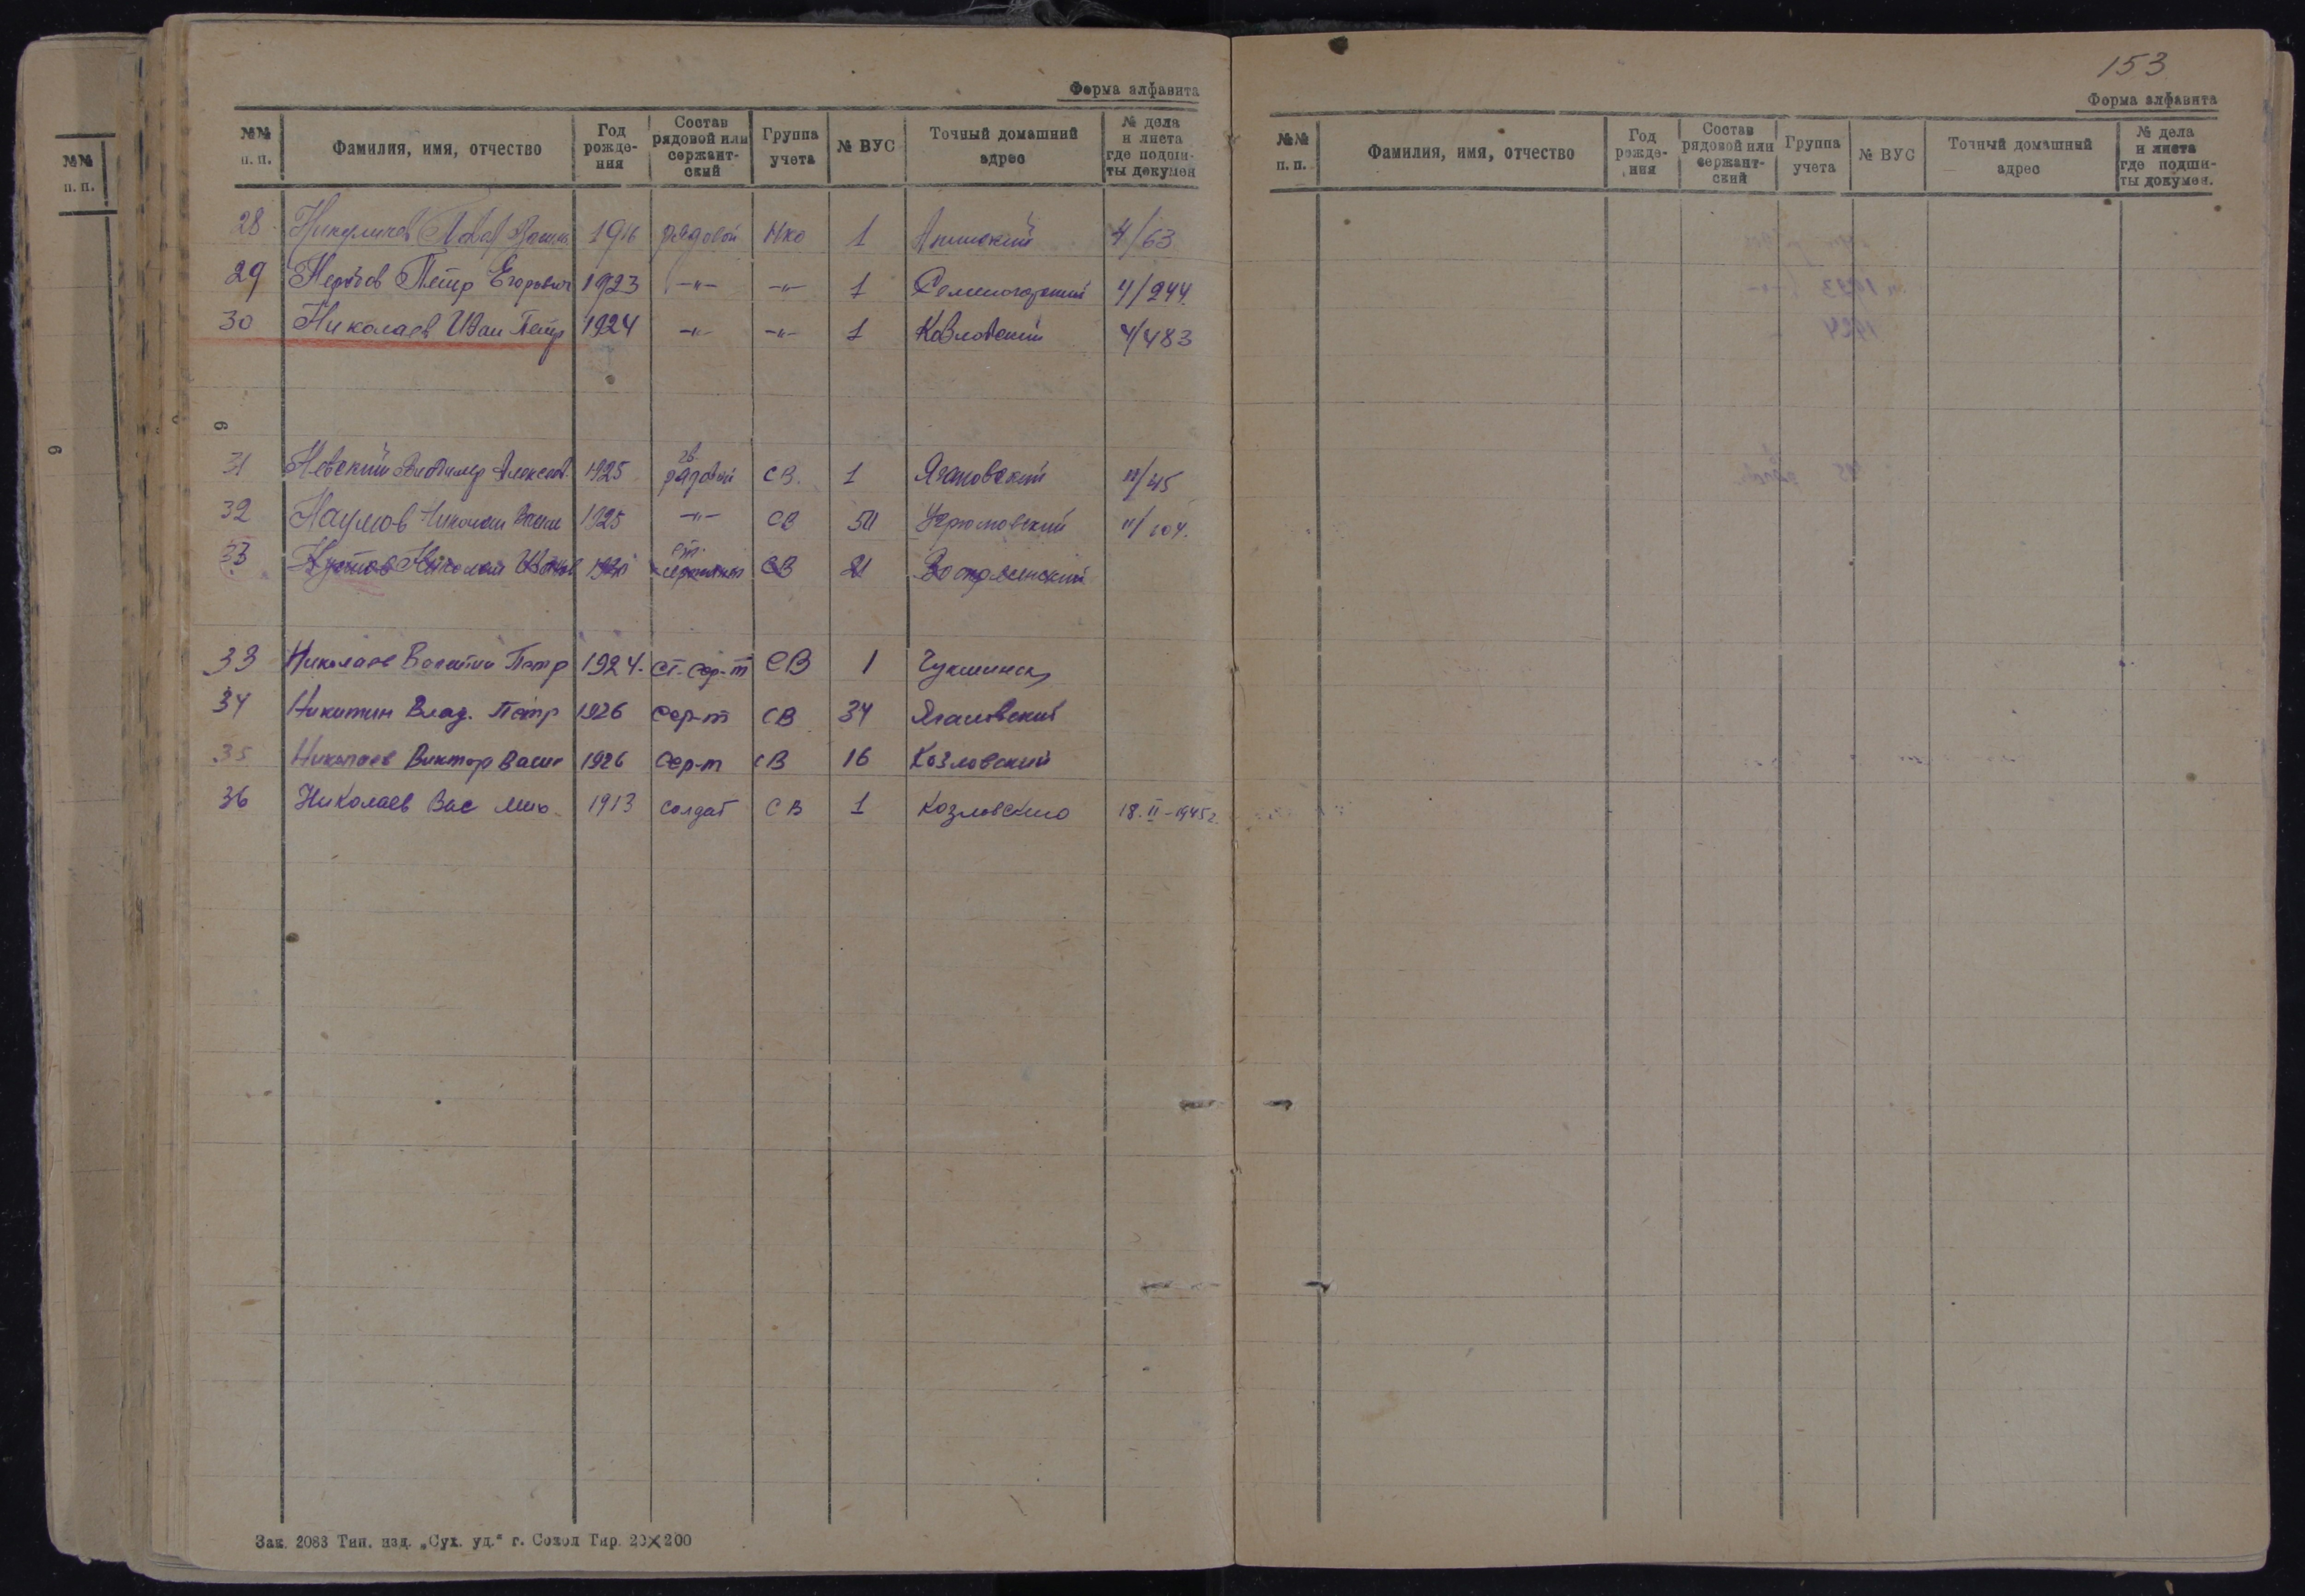 Форма алфавита
№№ п. п. Фамилия, имя, отчество Год рожде- ния Состав рядовой или сержант- ский Группа учета № ВУС Точный домашний адрес № дела и листа где подши- ты докумен
28 1916 рядовой Нко 1 4/63
29 Петр Егорович 1923 -"- -"- 1 4/244
30 Николаев Иван Петр 1924 -"- -"- 1 Козловский 4/483
31 Невский Владимир Алексеев. 1925 гв. рядовой СВ. 1 Ягановский 11/45
32 Наумов Николай Васил 1925 -"- СВ 11/104.
33 Николай ст. СВ 21
33 Николаев Василий Петр 1924. ст. сер-т СВ 1 Чукшинск
34 Никитин Влад. Петр 1926 сер-т СВ 34 Ягановский
35 Николаев Виктор Васил 1926 сер-т СВ 16 Козловский
36 Николаев Вас 1913 солдат СВ 1 18.II-1945г.
Зак. 2083 Тип. изд. „Сух. уд.“ г. Сокол Тир. 20×200
№№ п. п.
6
6
153
Форма алфавита
№№ п. п. Фамилия, имя, отчество Год рожде- ния Состав рядовой или сержант- ский Группа учета № ВУС Точный домашний адрес № дела и листа где подши- ты докумен.